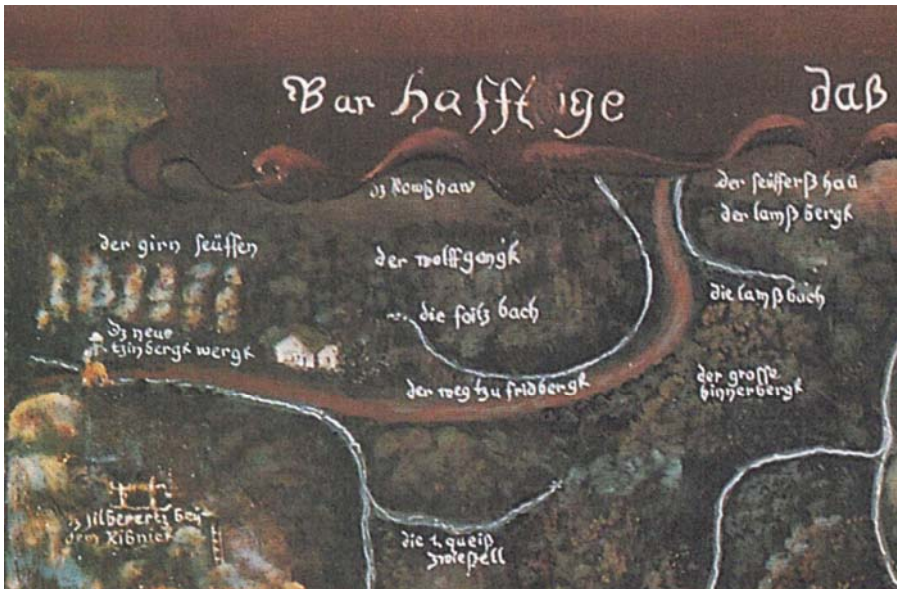 Warhafftige daß
dz Rowßhaw
der seüfferß haü
der lamß bergk
der girn seüffen
der wolffgangk
die lamß bach
die foitz bach
dz neue
tzinbergk wergk
der weg tzu fridbergk
der grosse
hinnerbergk
dz silberertz beü
dem
die queiß